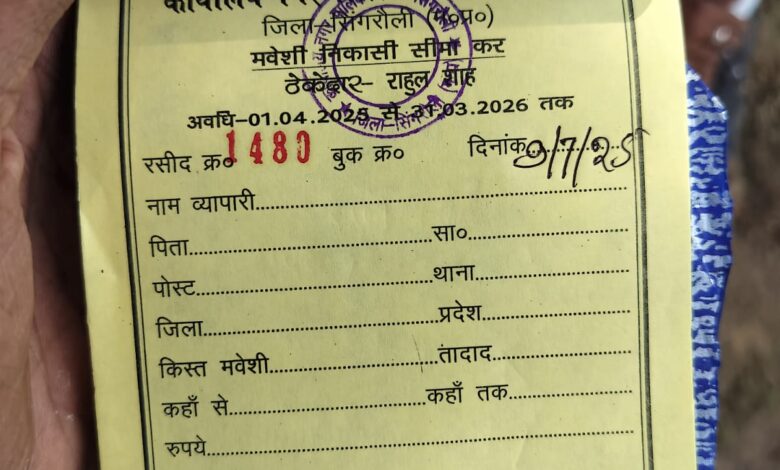 कार्यालय
जिला-सिंगरौली (म०प्र०)
मवेशी निकासी सीमा कर
ठेकेदार- राहुल शाह
अवधि-01.04.2025 से 31.03.2026 तक
रसीद क्र० 1480 बुक क्र० दिनांक 9/7/25
नाम व्यापारी
पिता सा०
पोस्ट थाना
जिला प्रदेश
किस्त मवेशी तादाद
कहाँ से कहाँ तक
रुपये